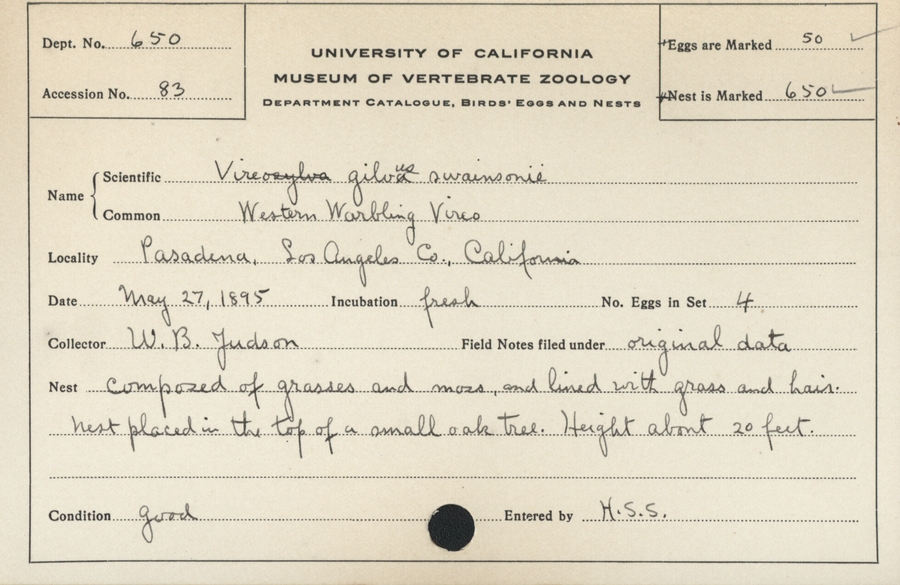 Dept. No. 650
Accession No. 83
UNIVERSITY OF CALIFORNIA
MUSEUM OF VERTEBRATE ZOOLOGY
DEPARTMENT CATALOGUE, BIRDS' EGGS AND NESTS
Eggs are Marked 50
Nest is Marked 650
Name
Scientific Vireosylva gilvus swainsonii
Common Western Warbling Vireo
Locality Pasadena, Los Angeles Co., California
Date May 27, 1895 Incubation fresh No. Eggs in Set 4
Collector W. B. Judson Field Notes filed under original data
Nest composed of grasses and moss, and lined with grass and hair.
Nest placed in the top of a small oak tree. Height about 20 feet.
Condition good Entered by H.S.S.